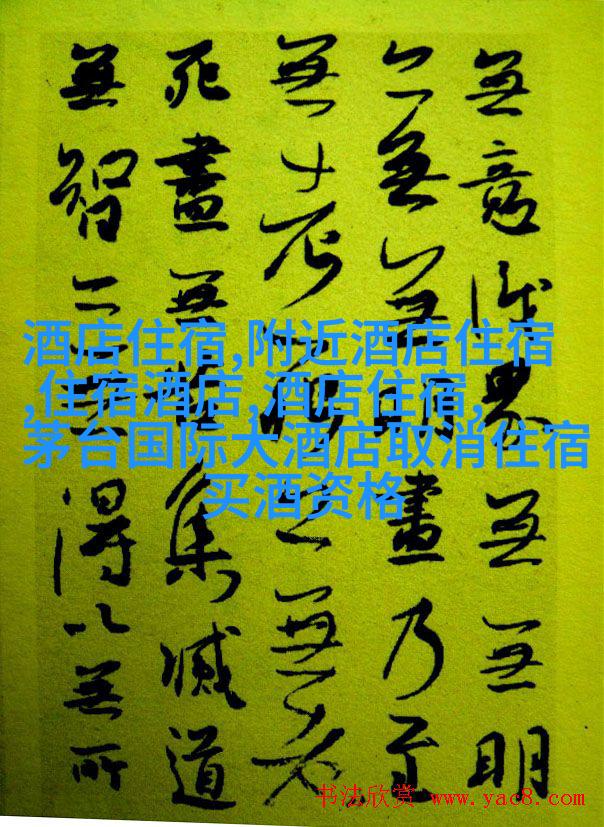 無意識界無無明
亦無無明盡乃至
無老死亦無老
死盡無苦集滅道
無智亦無得以無所
酒店住宿,附近酒店住宿
,住宿酒店,酒店住宿,
茅台国际大酒店取消住宿
买酒资格
书法欣赏 www.yac8.com